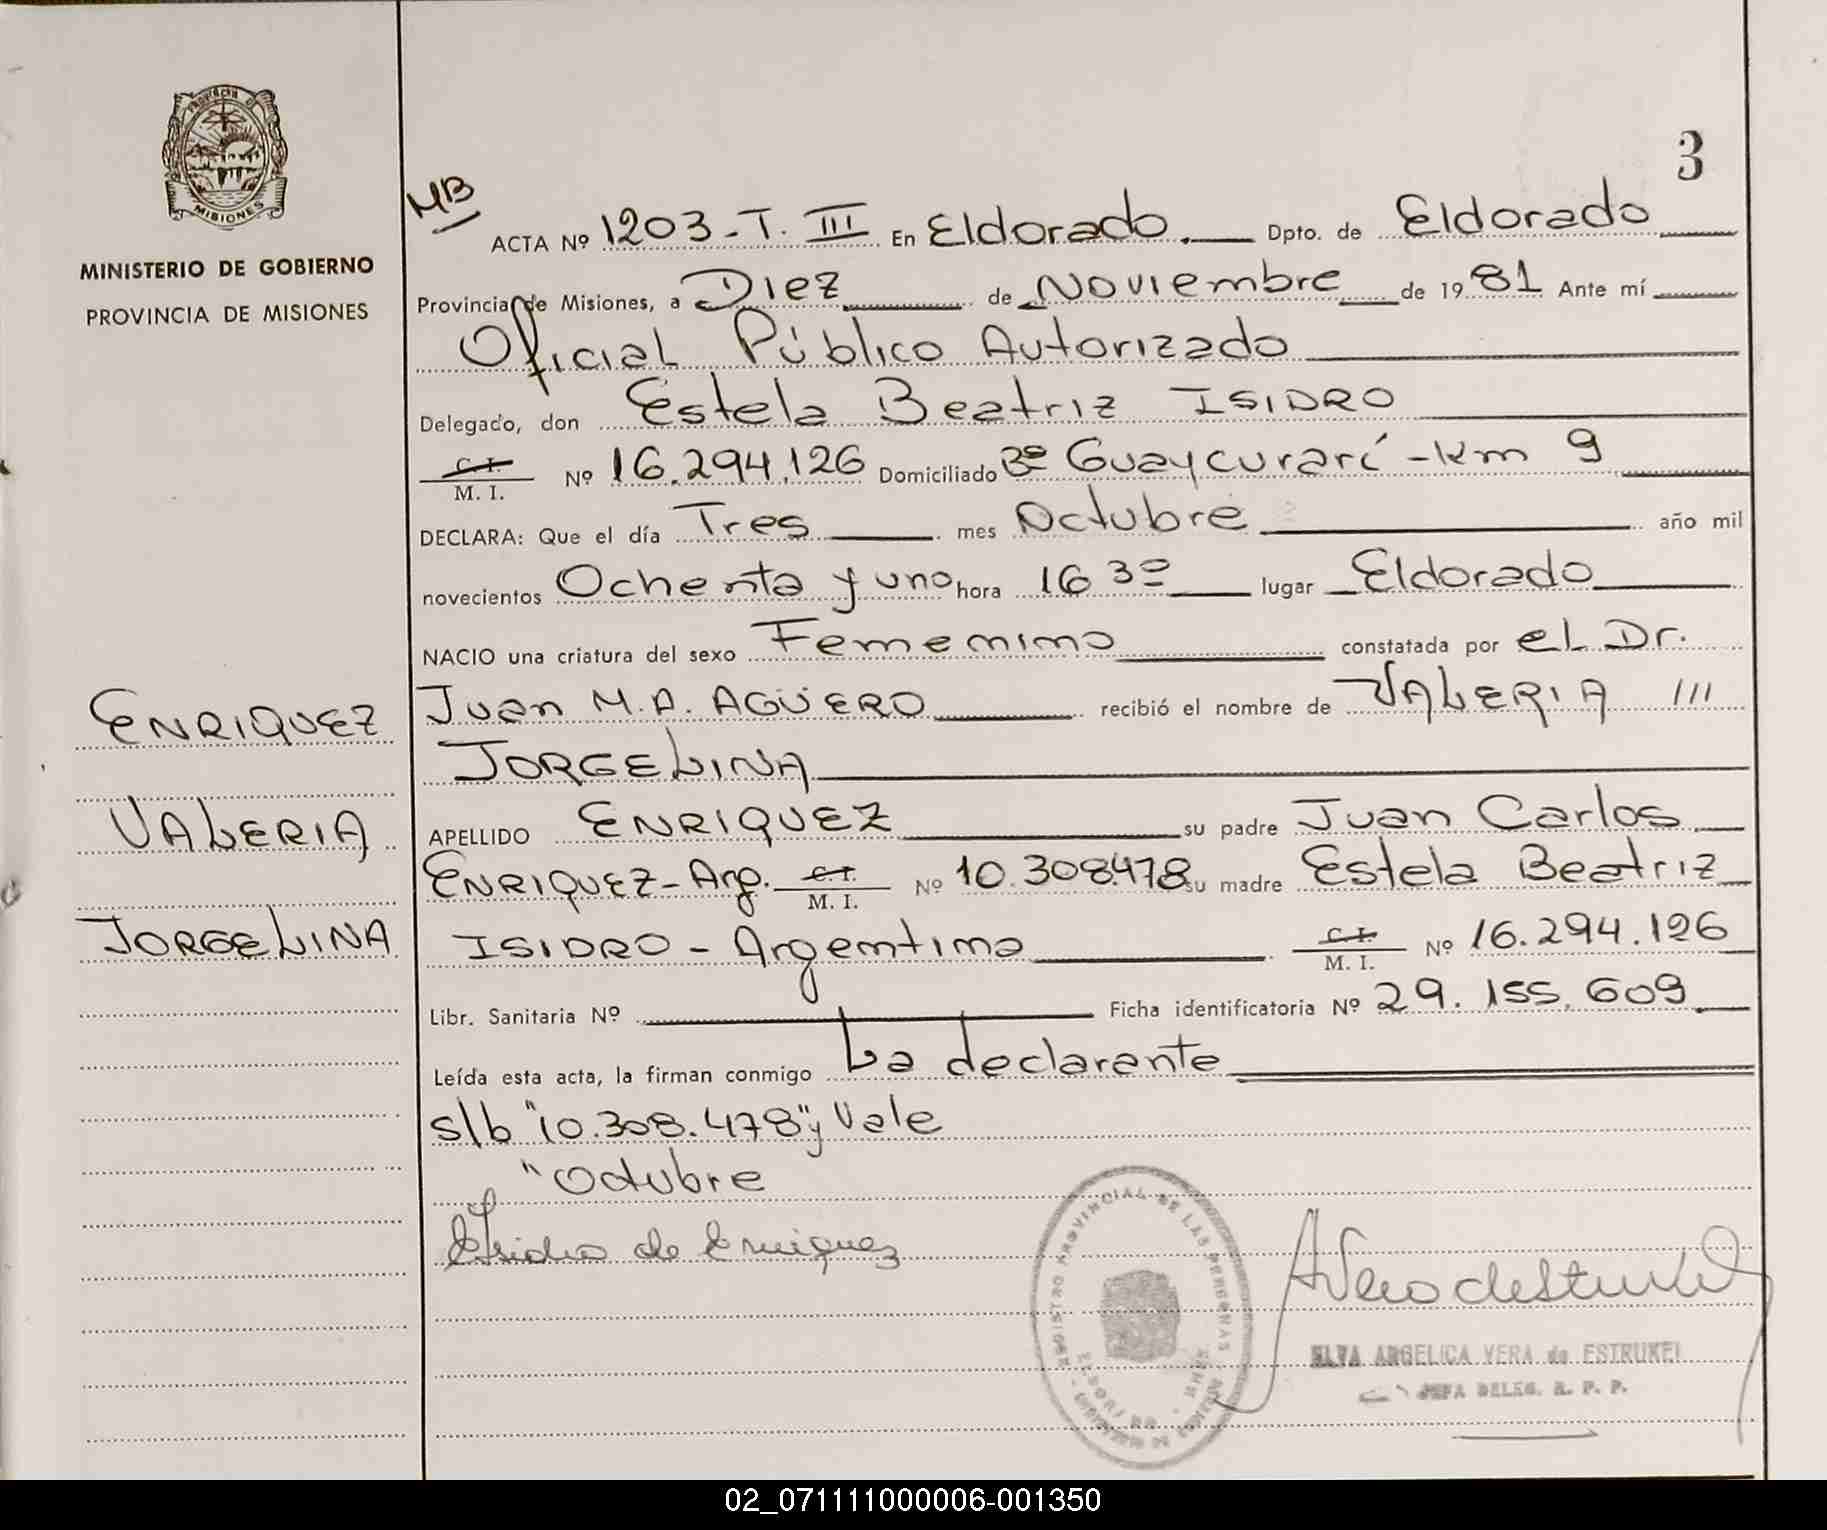 3
MINISTERIO DE GOBIERNO
PROVINCIA DE MISIONES
MISIONES
ENRIQUEZ
VALERIA
JORGELINA
MB
ACTA Nº 1203-T. III En Eldorado. Dpto. de Eldorado
Provincia de Misiones, a Diez de Noviembre de 1981 Ante mí
Oficial Público Autorizado
Delegado, don Estela Beatriz ISIDRO
C.I. M. I. Nº 16.294.126 Domiciliado Bº Guaycurarí - km 9
DECLARA: Que el día Tres mes Octubre año mil
novecientos Ochenta y uno hora 16 30 lugar Eldorado
NACIO una criatura del sexo Femenino constatada por el Dr.
Juan M. A. AGÜERO recibió el nombre de VALERIA ///
JORGELINA
APELLIDO ENRIQUEZ su padre Juan Carlos
ENRIQUEZ - Arg. C.I. M. I. Nº 10.308.478 su madre Estela Beatriz
ISIDRO - Argentina C.I. M. I. Nº 16.294.126
Libr. Sanitaria Nº Ficha identificatoria Nº 29.155.609
Leída esta acta, la firman conmigo La declarante
s/b "10.308.478" y Vale
"Octubre
E Isidro de Enriquez
REGISTRO PROVINCIAL DE LAS PERSONAS
AVera de Estrukel
ELVA ARGELICA VERA de ESTRUKEL
JEFA DELEG. R. P. P.
02_071111000006-001350